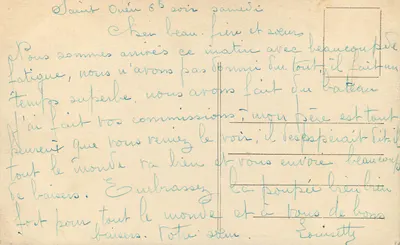 Saint Ouen 6h soir samedi
Cher beau-frère et sœur
Nous sommes arrivés ce matin avec beaucoup de
fatigue, nous n'avons pas dormi du tout, il fait un
temps superbe, nous avons fait du bateau
J'ai fait vos commissions, mon père est tout
heureux que vous veniez le voir, il désespérait dit-il
tout le monde va bien et vous envoie beaucoup
de baisers. Embrassez la poupée bien bien
fort pour tout le monde et à vous de bons
baisers. Votre sœur Louisette